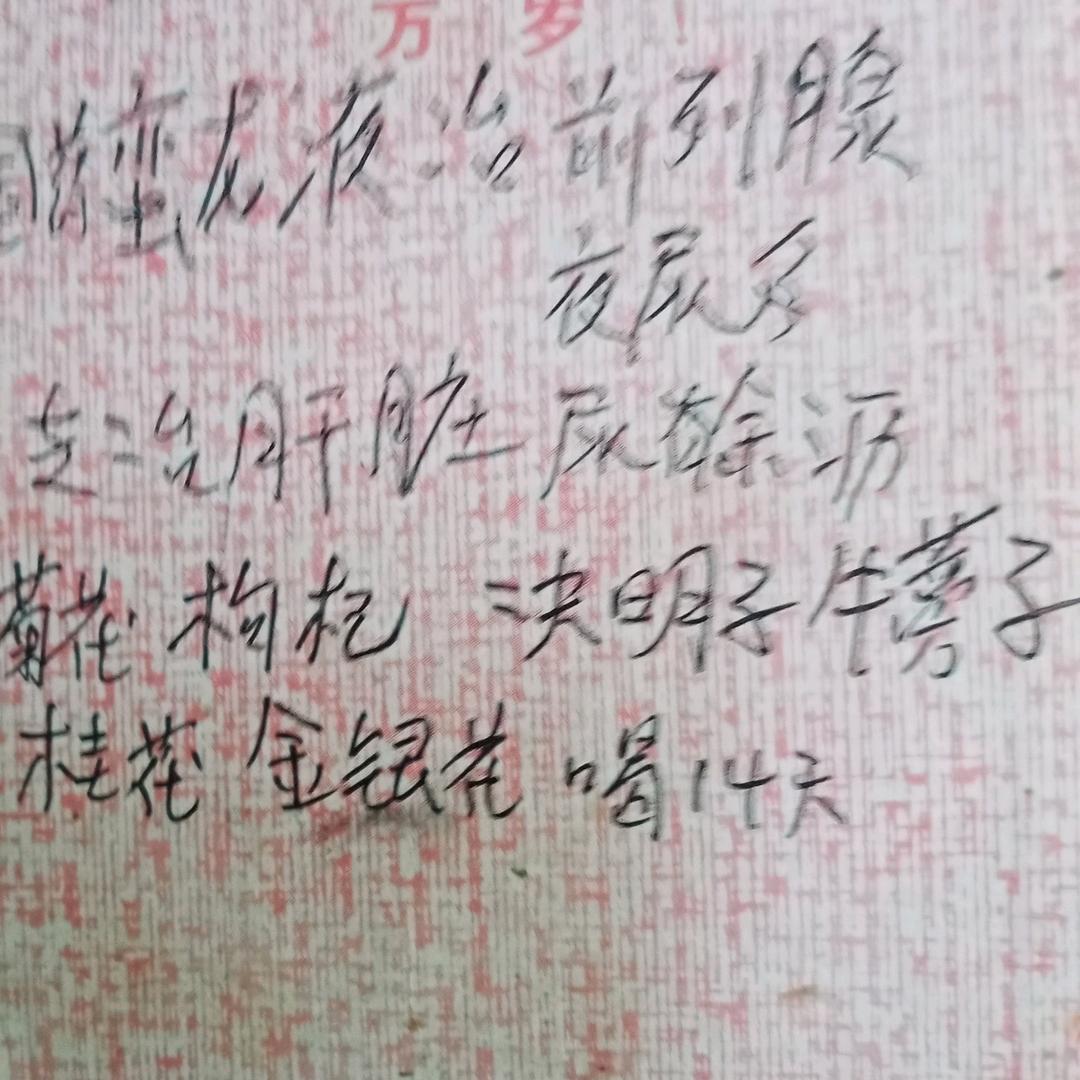 万岁!
国药蛮龙液治前列腺
夜尿多
走治肝脏 尿 除沥
菊花 枸杞 决明子 牛蒡子
桂花 金银花 喝14天